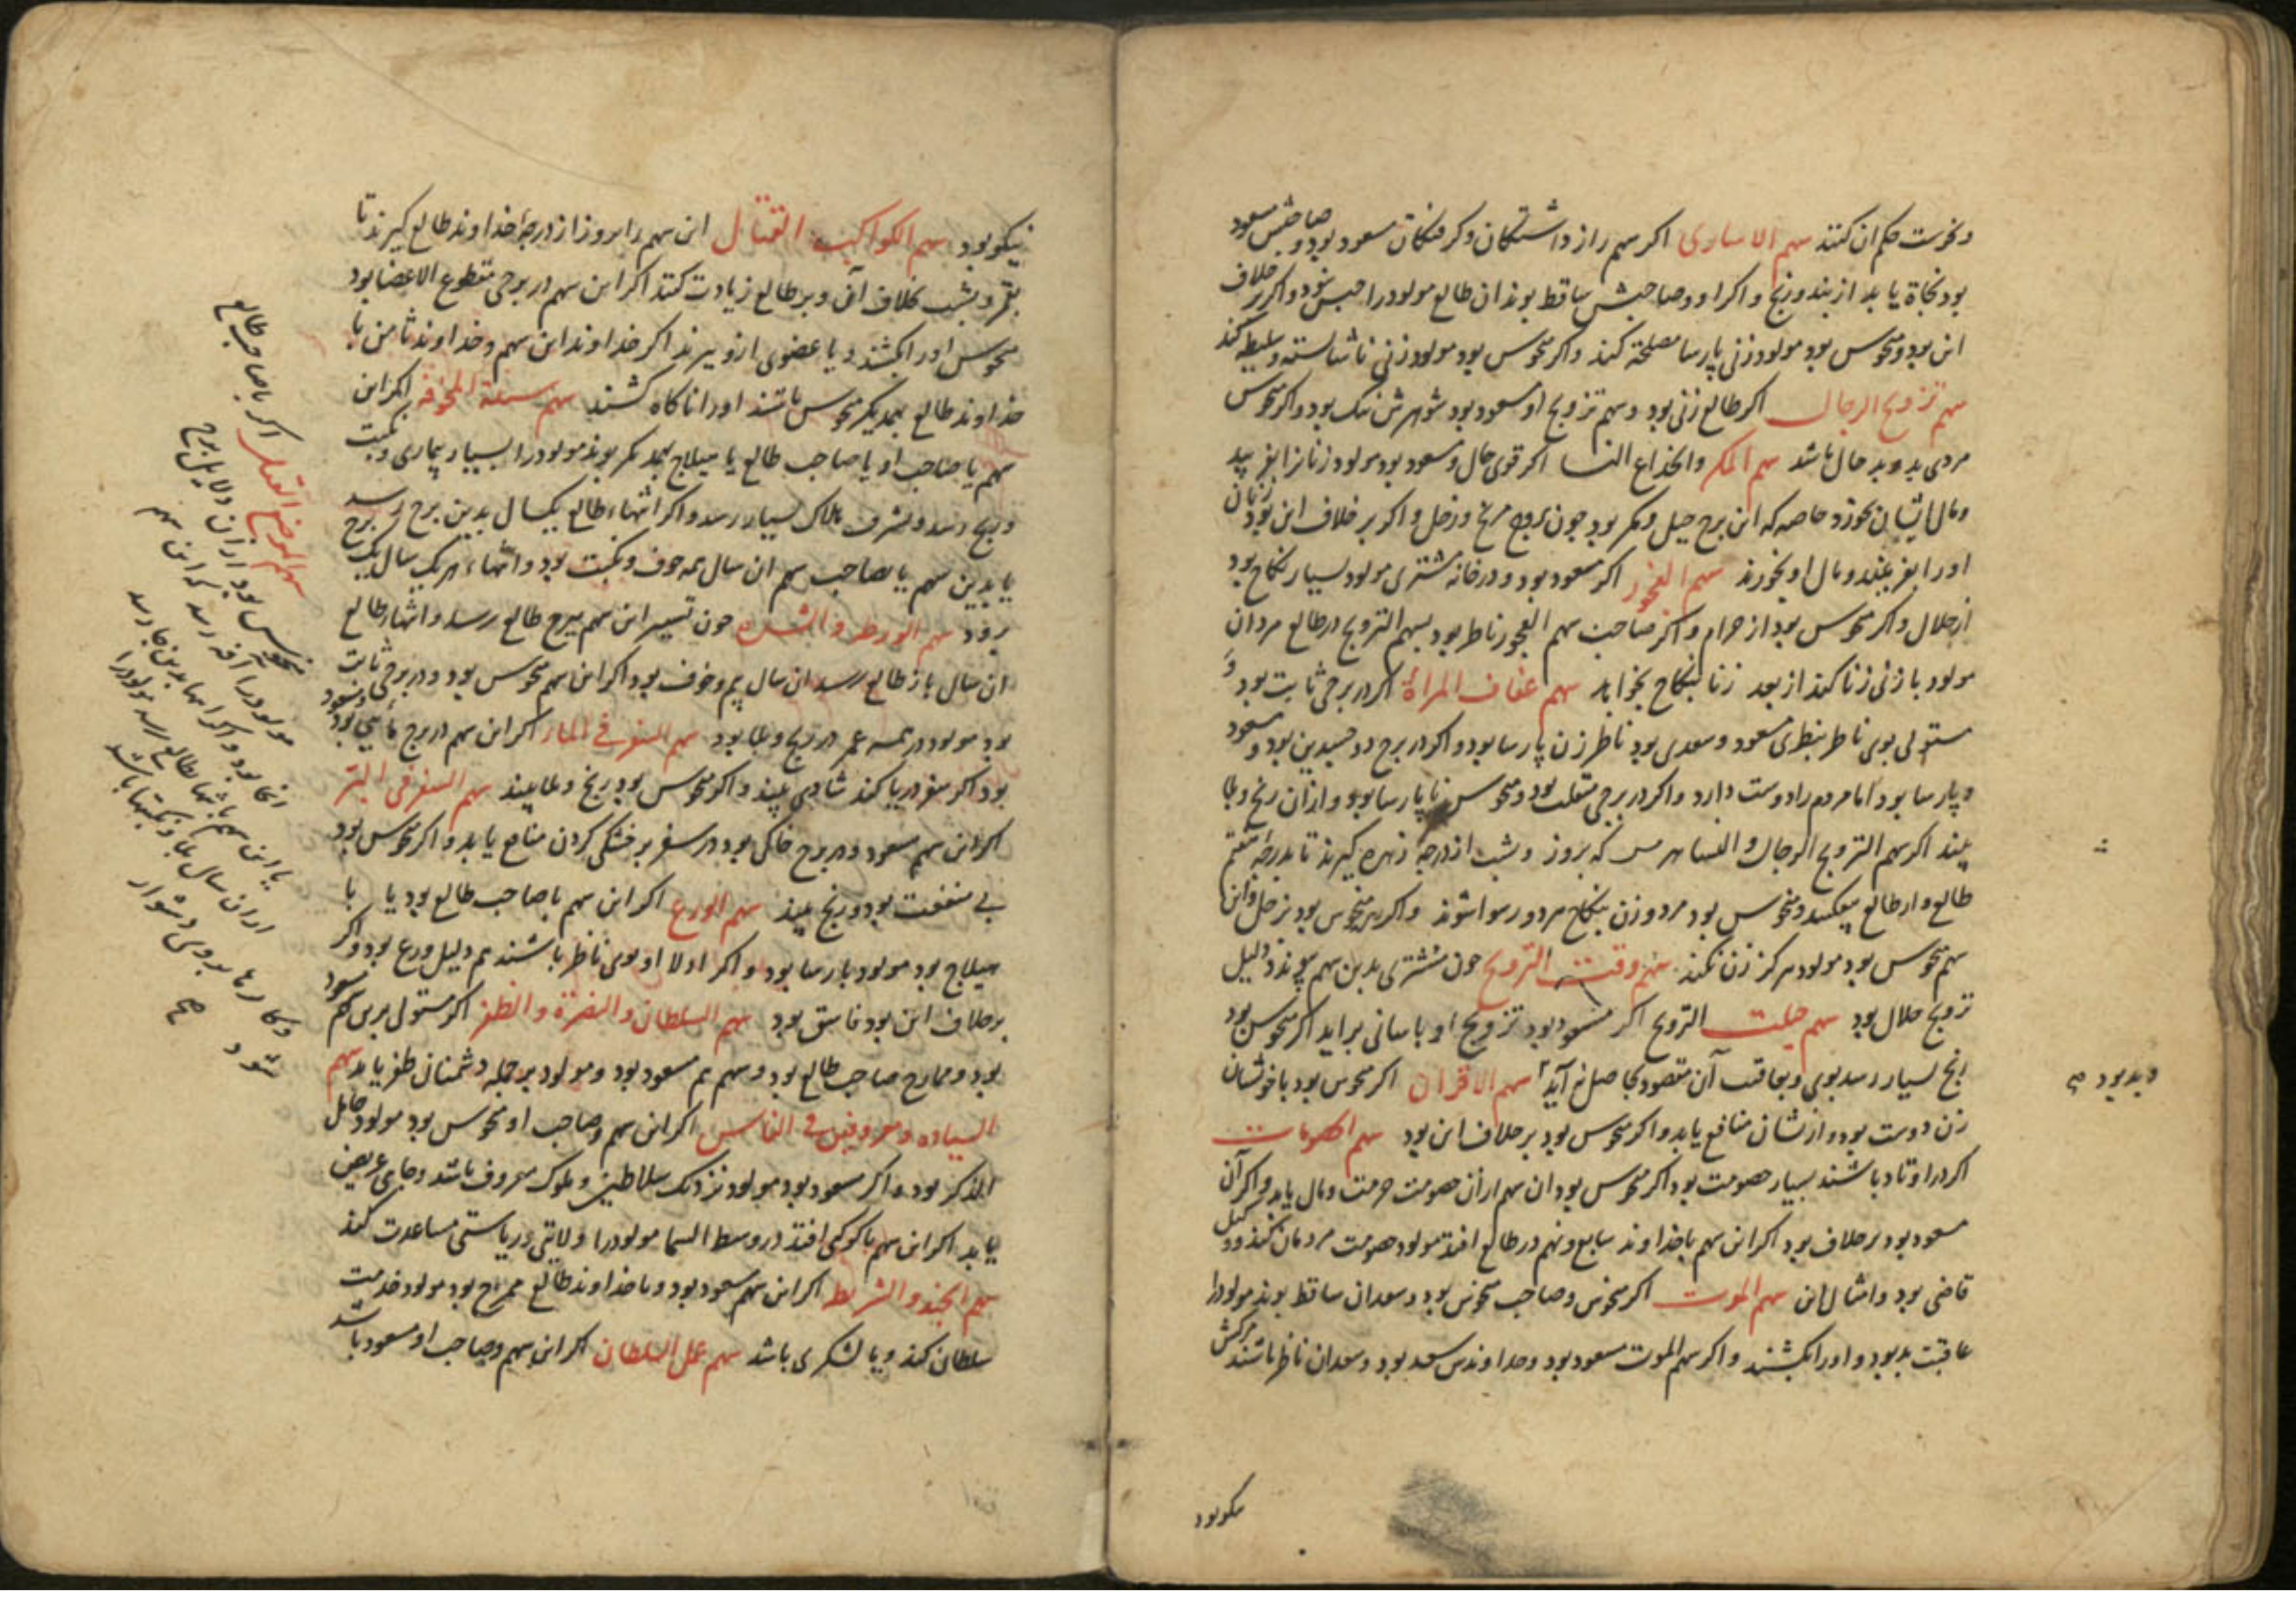 ونحوست حکم ان کنند سهم الاساری اکر سهم راز داشتکان و کرفتکان مسعود بود و صاحبش مسعود
بود نجاة یابد از بند و رنج و اکر او و صاحبش ساقط بوند ان طالع مولود را حبس بود و اکر بر خلاف
این بود و منحوس بود مولود زنی پارسا مصلحه کند و اکر منحوس بود مولود زنی ناشایسته و سلیطه کند
سهم تزویج الرجال اکر طالع زنی بود و سهم تزویج او مسعود بود شوهرش نیک بود و اکر منحوس
مردی بد و بد حال باشد سهم المکر والخداع النسا اکر قوی حال و مسعود بود مولود زنانرا بفریبد
و مال ایشان بخورد خاصه که این برج حیل و مکر بود چون بروج مریخ و زحل و اکر بر خلاف این بود زنان
او را بفریبند و مال او بخورند سهم الفجور اکر مسعود بود و در خانه مشتری مولود بسیار نکاح بود
از حلال و اکر منحوس بود از حرام و اکر صاحب سهم الفجور ناظر بود بسهم التزویج در طالع مردان
مولود با زنی زنا کند از بعد زنا بنکاح بخواهد سهم عفاف المراة اکر در برجی ثابت بود و
مستولی بوی ناظر بنظری مسعود و سعدی بود ناظر زن پارسا بود و اکر در برج دو جسدین بود و مسعود
و پارسا بود اما مردم را دوست دارد و اکر در برجی منقلب بود و منحوس نا پارسا بود و از ان رنج و بلا
بیند اکر سهم التزویج الرجال و النسا هر که بروز و شب از درجه زهره کیرند تا بدرجه هفتم
طالع و از طالع میفکنند و منحوس بود مرد و زن بنکاح مرد و رسوا شوند و اکر منحوس بود بزحل و این
سهم منحوس بود مولود هرکز زن نکند سهم وقت التزویج چون مشتری بدین سهم پیوندد دلیل
تزویج حلال بود سهم حیلت التزویج اکر مسعود بود تزویج او باسانی براید اکر منحوس بود
رنج بسیار رسد بوی و بعاقبت آن مقصود بحاصل نه آید سهم الاقران اکر منحوس بود با خویشان
زن دوست بود و ازیشان منافع یابد و اکر منحوس بود بر خلاف این بود سهم الخصومات
اکر در اوتاد باشند بسیار خصومت بود اکر منحوس بود ان سهم از ان خصومت حرمت و مال یابد و اکر آن
مسعود بود بر خلاف بود اکر این سهم با خداوند سابع و نهم در طالع افتد مولود خصومت مردمان کند و وکیل
قاضی بود و امثال این سهم الموت اکر منحوس و صاحب منحوس بود و سعدان ساقط بوند مولود را
عاقبت بد بود و او را بکشند و اکر سهم الموت مسعود بود و خداوندش سعد بود و سعدان ناظر باشند مرکش
و بد بود صح
نیکو بود
نیکو بود سهم الکواکب القتال این سهم را بروز از درجه خداوند طالع کیرند تا
بقمر و بشب بخلاف آن و بر طالع زیادت کنند اکر این سهم در برجی مقطوع الاعضا بود
منحوس او را بکشند و یا عضوی ازو ببرند اکر خداوند این سهم و خداوند ثامن با
خداوند طالع بیکدیکر منحوس باشند او را ناکاه کشند سهم سنة المخوفه اکر این
سهم یا صاحب او یا صاحب طالع یا هیلاج بیکدیکر بوند مولود را بسیار بیماری و نکبت
و رنج رسد و مشرف بهلاک بسیار رسد و اکر انتهاء طالع بیکسال بدین برج رسد
یا بدین سهم یا بصاحب سهم ان سال همه خوف و نکبت بود و انتهاء هر یک سال یک برج
برود سهم الورطه و الشده چون تسییر این سهم ببرج طالع رسد و انتهاء طالع
ان سال باز طالع رسد ان سال بیم و خوف بود اکر این سهم منحوس بود و در برجی ثابت
بود مولود در همه عمر در رنج و بلا بود سهم السفر فی الماء اکر این سهم در برج مائی بود و مسعود
بود اکر سفر دریا کند شادی بیند و اکر منحوس بود رنج و بلا بیند سهم السفر فی البر
اکر این سهم مسعود و در برج خاکی بود در سفر بر خشکی کردن منافع یابد و اکر منحوس بود
بی منفعت بود و رنج بیند سهم الورع اکر این سهم با صاحب طالع بود یا با
هیلاج بود مولود پارسا بود و اکر اولا او بوی ناظر باشند هم دلیل ورع بود و اکر
بر خلاف این بود فاسق بود سهم السلطان والنصرة والظفر اکر مستولی برین سهم مسعود
بود و ممازج صاحب طالع بود و سهم هم مسعود بود و مولود بر جمله دشمنان ظفر یابد سهم
السیاده و معروفین فی الناس اکر این سهم و صاحب او منحوس بود مولود خامل
الذکر بود و اکر مسعود بود مولود نزدیک سلاطین و ملوک معروف باشد و جاهی عریض
یابد اکر این سهم با کوکبی افتد در وسط السما مولود را ولایتی و ریاستی مساعدت کند
سهم الجند و الشرط اکر این سهم مسعود بود و با خداوند طالع ممزج بود مولود خدمت
سلطان کند و یا لشکری باشد سهم عمل السلطان اکر این سهم و صاحب او مسعود باشد
سهم الموضع الثقیل اکر با صاحب طالع
منحوس بود از ان دلایل برج
مولود را آفه رسد اکر این سهم
انجا بود و اکر انتها بدین جا رسد
یا این سهم بانتهاء طالع رسد مولود را
از ان سال بلا و نکبتها باشد
و کارها بروی دشوار
شود صح